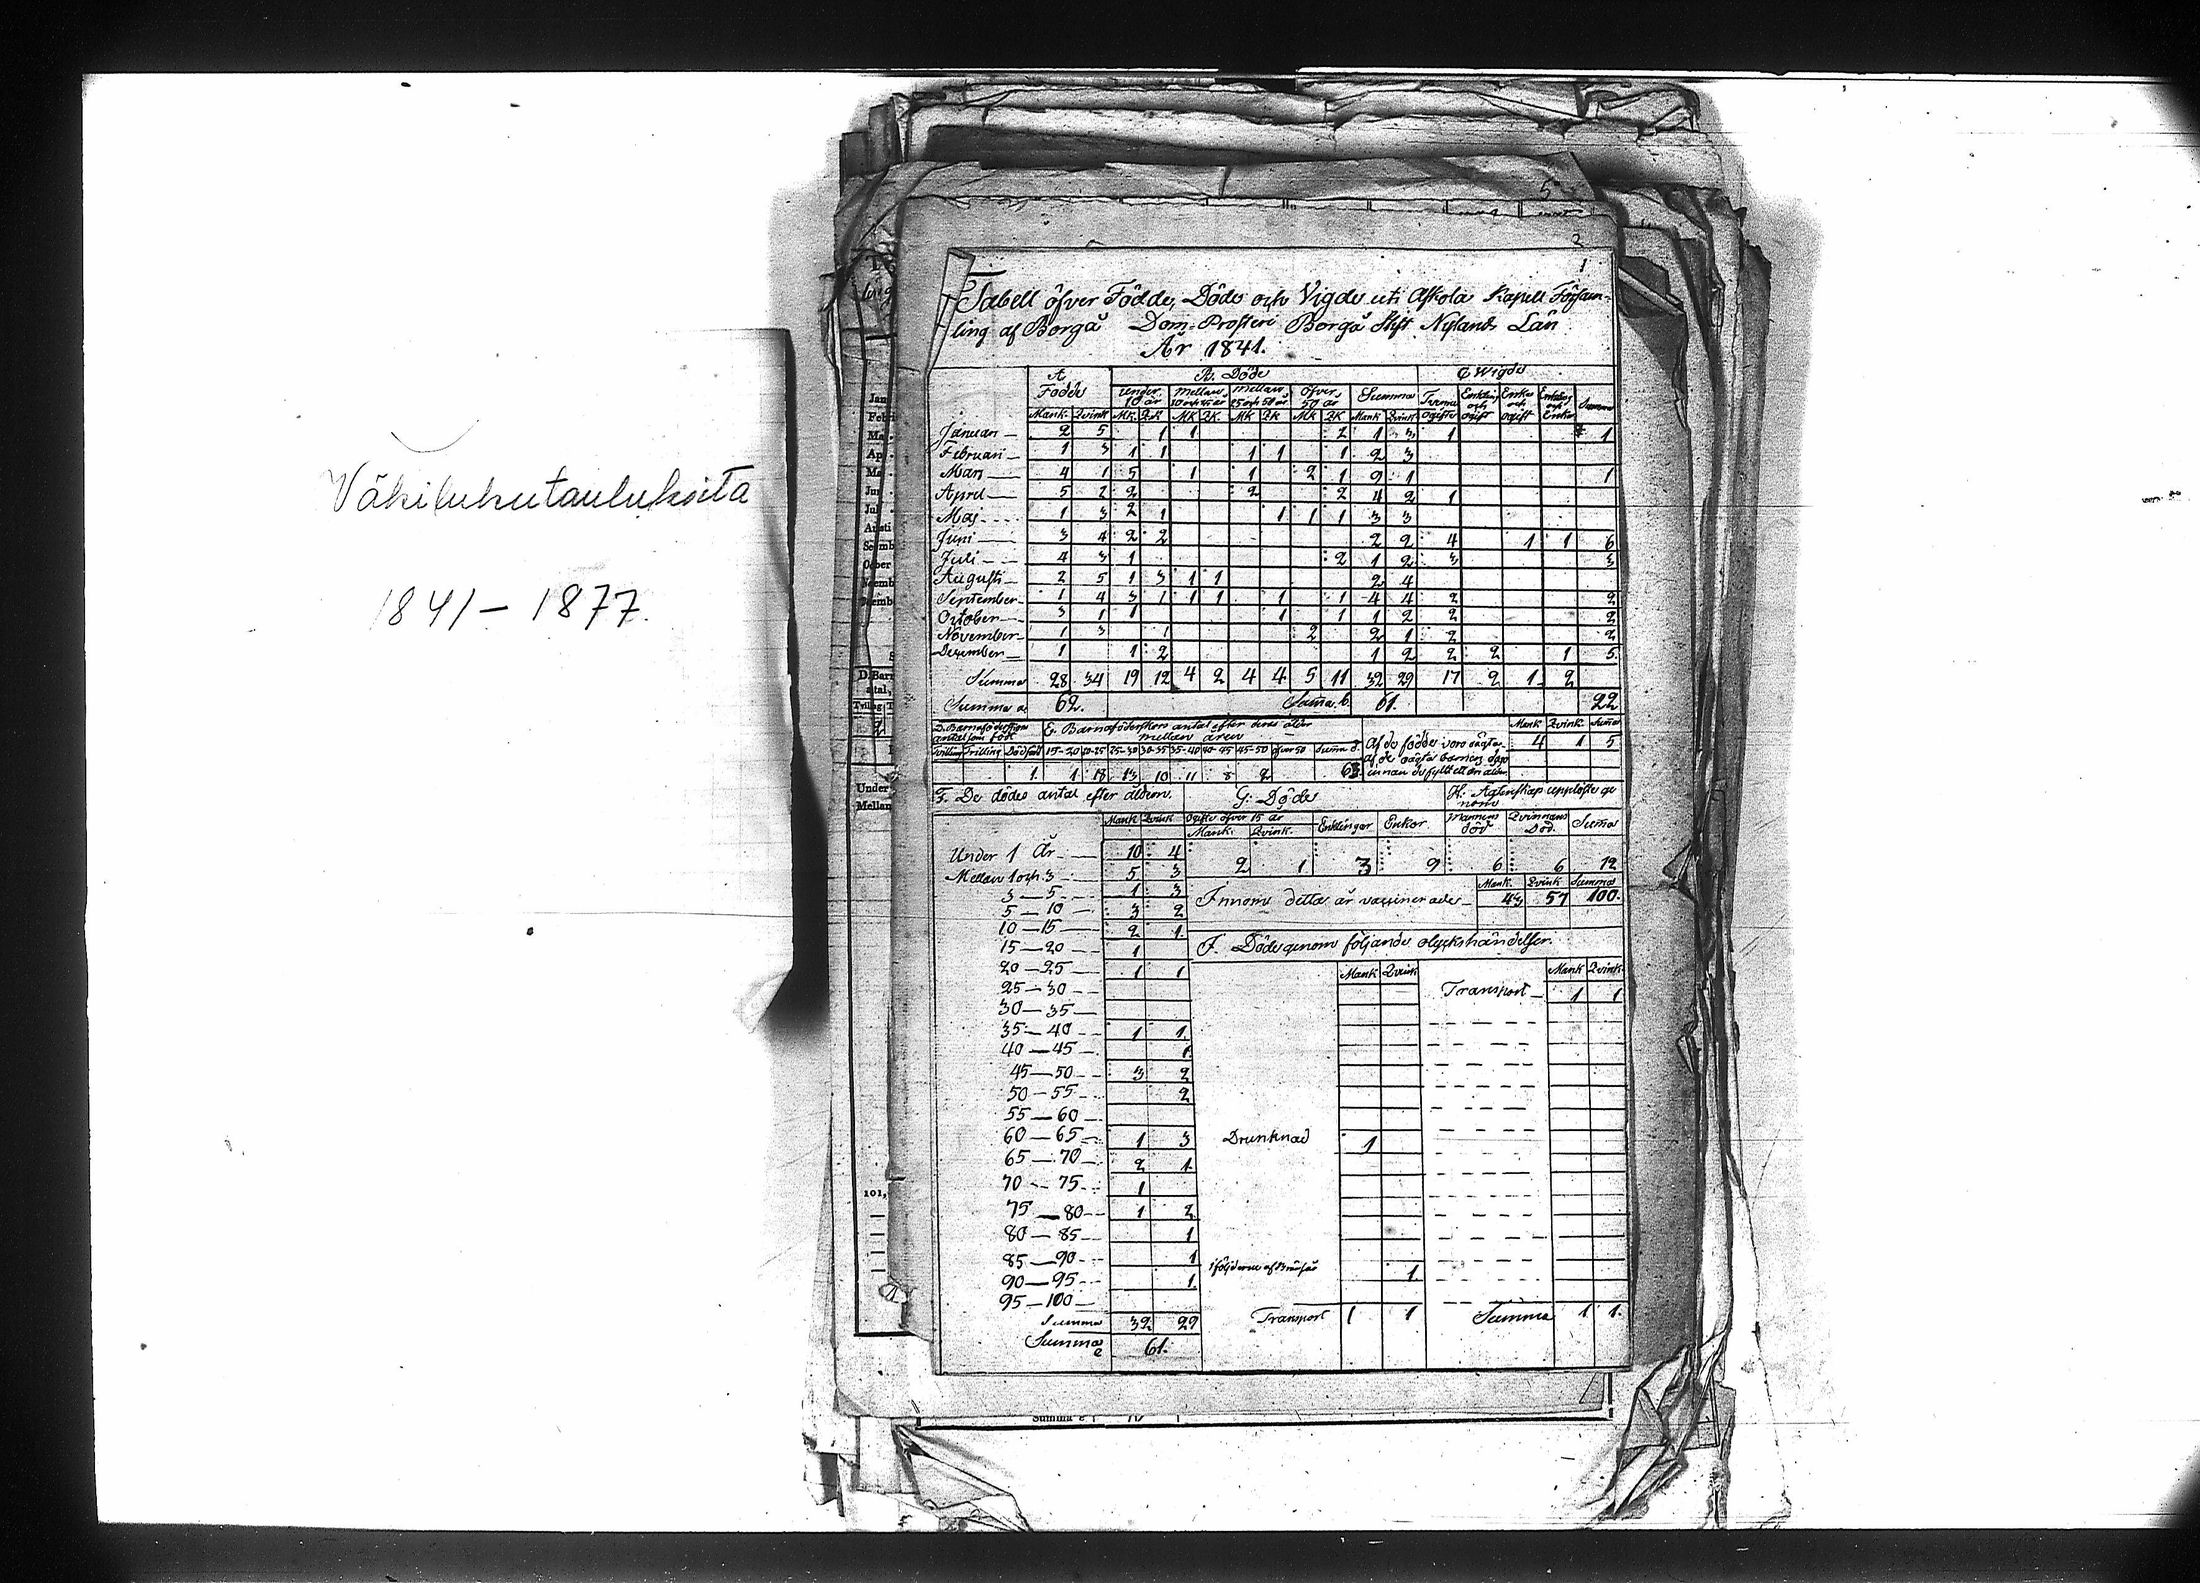 Väkilukutauluksita
1841 – 1877.
5
2
1
Tabell öfver Födde, Döde och Vigde uti Askola Kapell Försam-
ling af Borgå Dom-Prosteri Borgå Stift Nylands Län
År 1841.
A Födde B. Döde C Wigde
Under 10 år Mellan 10 och 25 år Mellan 25 och 50 år öfver 50 år Summa Tvenne ogifte Enkling och ogift Enka och ogift Enkling och Enka Summa
Mank Qvink MK QK MK QK MK QK MK QK Mank Qvink
Januari 2 5 1 1 2 1 3 1 1
Februari 1 3 1 1 1 1 1 2 3
Mars 4 1 5 1 1 2 1 9 1 1
April 5 2 2 2 2 4 2 1
Maj 1 3 2 1 1 1 1 3 3
Juni 3 4 2 2 2 2 4 1 1 6
Juli 4 3 1 2 1 2 3 3
Augusti 2 5 1 3 1 1 2 4
September 1 4 3 1 1 1 1 1 4 4 2 2
October 3 1 1 1 1 1 2 2 2
November 1 3 1 2 2 1 2 2
December 1 1 2 1 2 2 2 1 5
Summa 28 34 19 12 4 2 4 4 5 11 32 29 17 2 1 2
Summa a 62. Summa b. 61. 22
D. Barnsföderskors antal som född E. Barnaföderskors antal efter deras ålder mellan åren Mank Qvink Summa
Tvilling Trilling Dödfödt 15-20 20-25 25-30 30-35 35-40 40-45 45-50 öfver 50 Summa d. Af de födde voro oägta 4 1 5
1 1 18 13 10 11 8 2 63 af de oägta barnen dogo innan de fyllt ett års ålder
F. De dödes antal efter åldern. G: Döde H: Ägtenskap upplöste genom
Mank Qvink Ogifte öfver 15 år Enklingar Enkor Mannens död Qvinnans Död. Summa
Mank. Qvink.
Under 1 År 10 4 2 1 3 9 6 6 12
Mellan 1 och 3 5 3
3 – 5 1 3 Mank. Qvink Summa
5 – 10 3 2 Innom detta år vaccinerades 43 57 100.
10 – 15 2 1.
15 – 20 1 F. Döde genom följande olyckshändelser.
20 – 25 1 1 Mank Qvink Mank Qvink
25 – 30 Transport 1 1
30 – 35
35 – 40 1 1.
40 – 45 1.
45 – 50 3 2
50 – 55 2
55 – 60
60 – 65 1 3 Drunknad 1
65 – 70 2 1.
70 – 75 1
75 – 80 1 2
80 – 85 1
85 – 90 1
90 – 95 1. 1
95 – 100
Summa 32 29 Transport 1 1 Summa 1 1.
Summa e 61.